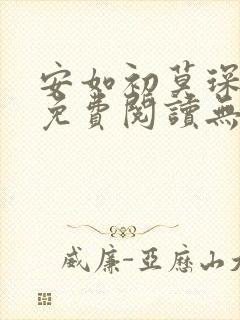 安如初莫琛
免費閱讀無
威廉-亞歷山大